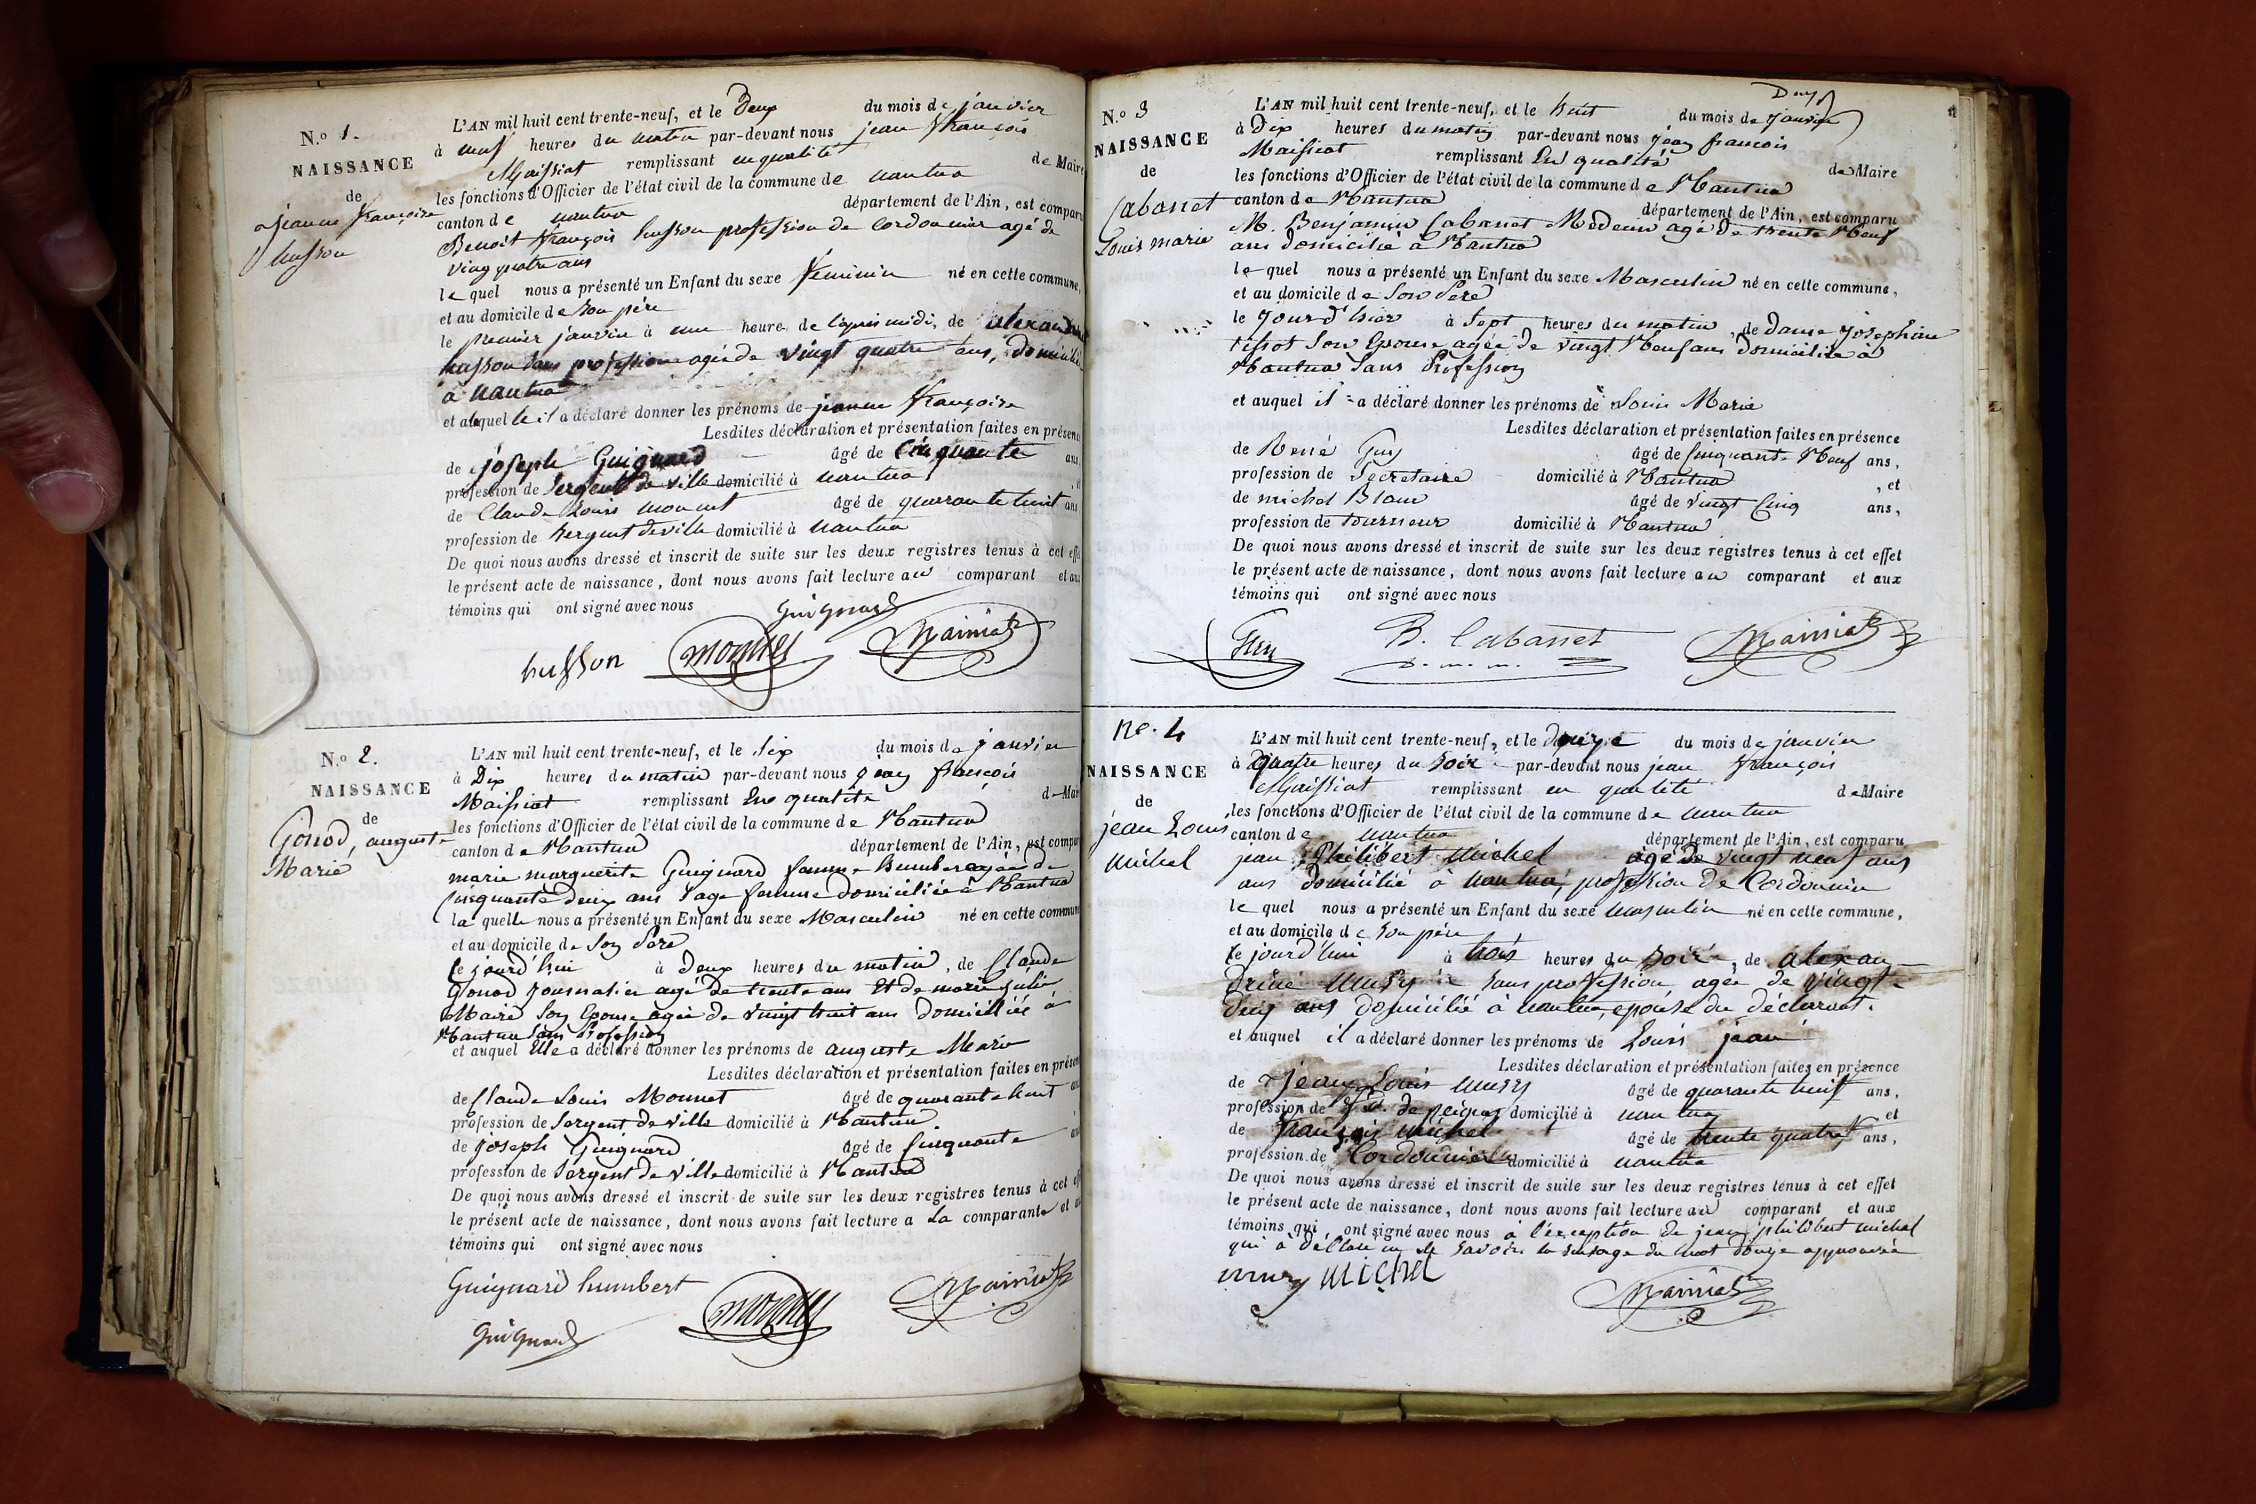 N.o 1.
NAISSANCE
de
jeanne françoise
husson
L'AN mil huit cent trente-neuf, et le Deux du mois de janvier
à neuf heures du matin par-devant nous jean françois
Maissiat remplissant en qualité de Maire
les fonctions d'Officier de l'état civil de la commune de nantua
canton de nantua département de l'Ain, est comparu
Benoit françois husson profession de Cordonnier agé de
vingt quatre ans
lequel nous a présenté un Enfant du sexe féminin né en cette commune,
et au domicile de son père
le premier janvier à une heure de l'après midi, de alexandrine
husson sans profession agée de vingt quatre ans, domiciliée
à nantua
et alaquelle il a déclaré donner les prénoms de jeanne françoise
Lesdites déclaration et présentation faites en présence
de joseph Guignard âgé de Cinquante ans
profession de Sergent de ville domicilié à nantua
de Claude Louis monnet âgé de quarante huit ans
profession de Sergent de ville domicilié à nantua
De quoi nous avons dressé et inscrit de suite sur les deux registres tenus à cet effet
le présent acte de naissance, dont nous avons fait lecture au comparant et aux
témoins qui ont signé avec nous
Guignard
husson monnet Maissiat
N.o 2.
NAISSANCE
de
Gonod, auguste
Marie
L'AN mil huit cent trente-neuf, et le Six du mois de janvier
à Dix heures du matin par-devant nous jean françois
Maissiat remplissant En qualité de Maire
les fonctions d'Officier de l'état civil de la commune de Nantua
canton de Nantua département de l'Ain, est comparu
marie marguerite Guignard femme humbert agée de
Cinquante deux ans Sage femme domiciliée à Nantua
laquelle nous a présenté un Enfant du sexe Masculin né en cette commune
et au domicile de Son Père
le jourd'hui à Deux heures du matin, de Claude
Gonod journalier agé de trente ans Et de marie julie
Maire Son Epouse agée de vingt huit ans domiciliés à
Nantua Sans Profession
et auquel Elle a déclaré donner les prénoms de auguste Marie
Lesdites déclaration et présentation faites en présence
de Claude Louis Monnet âgé de quarante huit ans
profession de Sergent de Ville domicilié à Nantua.
de joseph Guignard âgé de Cinquante ans
profession de Sergent de Ville domicilié à Nantua
De quoi nous avons dressé et inscrit de suite sur les deux registres tenus à cet effet
le présent acte de naissance, dont nous avons fait lecture a La comparante et aux
témoins qui ont signé avec nous
Guignard humbert monnet Maissiat
Guignard
N.o 3
NAISSANCE
de
Cabanet
Louis marie
L'AN mil huit cent trente-neuf, et le huit du mois de janvier
à Dix heures du matin par-devant nous jean françois
Maissiat remplissant En qualité de Maire
les fonctions d'Officier de l'état civil de la commune de Nantua
canton de Nantua département de l'Ain, est comparu
M. Benjamin Cabanet Médecin agé de trente Neuf
ans domicilié à Nantua
lequel nous a présenté un Enfant du sexe Masculin né en cette commune,
et au domicile de Son Père
le jour d'hier à Sept heures du matin, de dame josephine
Son Epouse agée de vingt Neuf ans domiciliée à
Nantua Sans Profession
et auquel il a déclaré donner les prénoms de Louis Marie
Lesdites déclaration et présentation faites en présence
de René Guy âgé de Cinquante Neuf ans,
profession de Secretaire domicilié à Nantua, et
de michel Blanc âgé de vingt Cinq ans,
profession de tourneur domicilié à Nantua
De quoi nous avons dressé et inscrit de suite sur les deux registres tenus à cet effet
le présent acte de naissance, dont nous avons fait lecture au comparant et aux
témoins qui ont signé avec nous
Guy B. Cabanet Maissiat
D. m. m.
No. 4
NAISSANCE
de
jean Louis
michel
L'AN mil huit cent trente-neuf, et le douze du mois de janvier
à quatre heures du Soir par-devant nous jean françois
Maissiat remplissant en qualité de Maire
les fonctions d'Officier de l'état civil de la commune de nantua
canton de nantua département de l'Ain, est comparu
jean Philibert michel agé de vingt neuf ans
ans domicilié à nantua, profession de Cordonnier
lequel nous a présenté un Enfant du sexe masculin né en cette commune,
et au domicile de Son père
le jourd'hui à trois heures du Soir, de alexan-
drine sans profession, agée de vingt
ans domicilié à nantua, epouse du déclarant.
et auquel il a déclaré donner les prénoms de Louis jean
Lesdites déclaration et présentation faites en présence
de jean Louis âgé de quarante huit ans,
profession de de peignes domicilié à nantua et
de françois michel âgé de trente quatre ans,
profession de Cordonnier domicilié à nantua
De quoi nous avons dressé et inscrit de suite sur les deux registres tenus à cet effet
le présent acte de naissance, dont nous avons fait lecture au comparant et aux
témoins qui ont signé avec nous à l'exception de jean philibert michel
qui a déclaré ne le savoir la surcharge du mot douze approuvée
michel
Maissiat